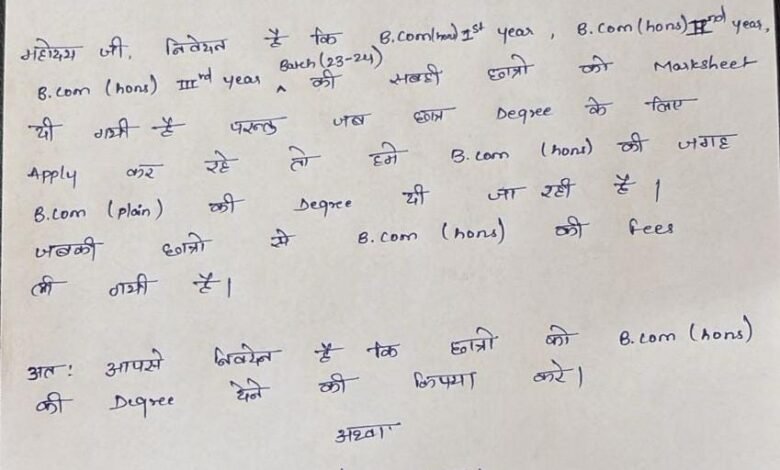 महोदय जी, निवेदन है कि B.Com(hons) Ist year, B.Com(hons) IInd year,
B.Com (hons) IIIrd year Batch (23-24) की सबही छात्रो को Marksheet
दी गयी है परन्तु जब छात्र Degree के लिए
Apply कर रहे तो हमे B.Com (hons) की जगह
B.Com (plain) की Degree दी जा रही है।
जबकी छात्रो से B.Com (hons) की fees
ली गयी है।
अत: आपसे निवदेन है कि छात्रो को B.Com (hons)
की Degree देने की किपया करे।
अथवा